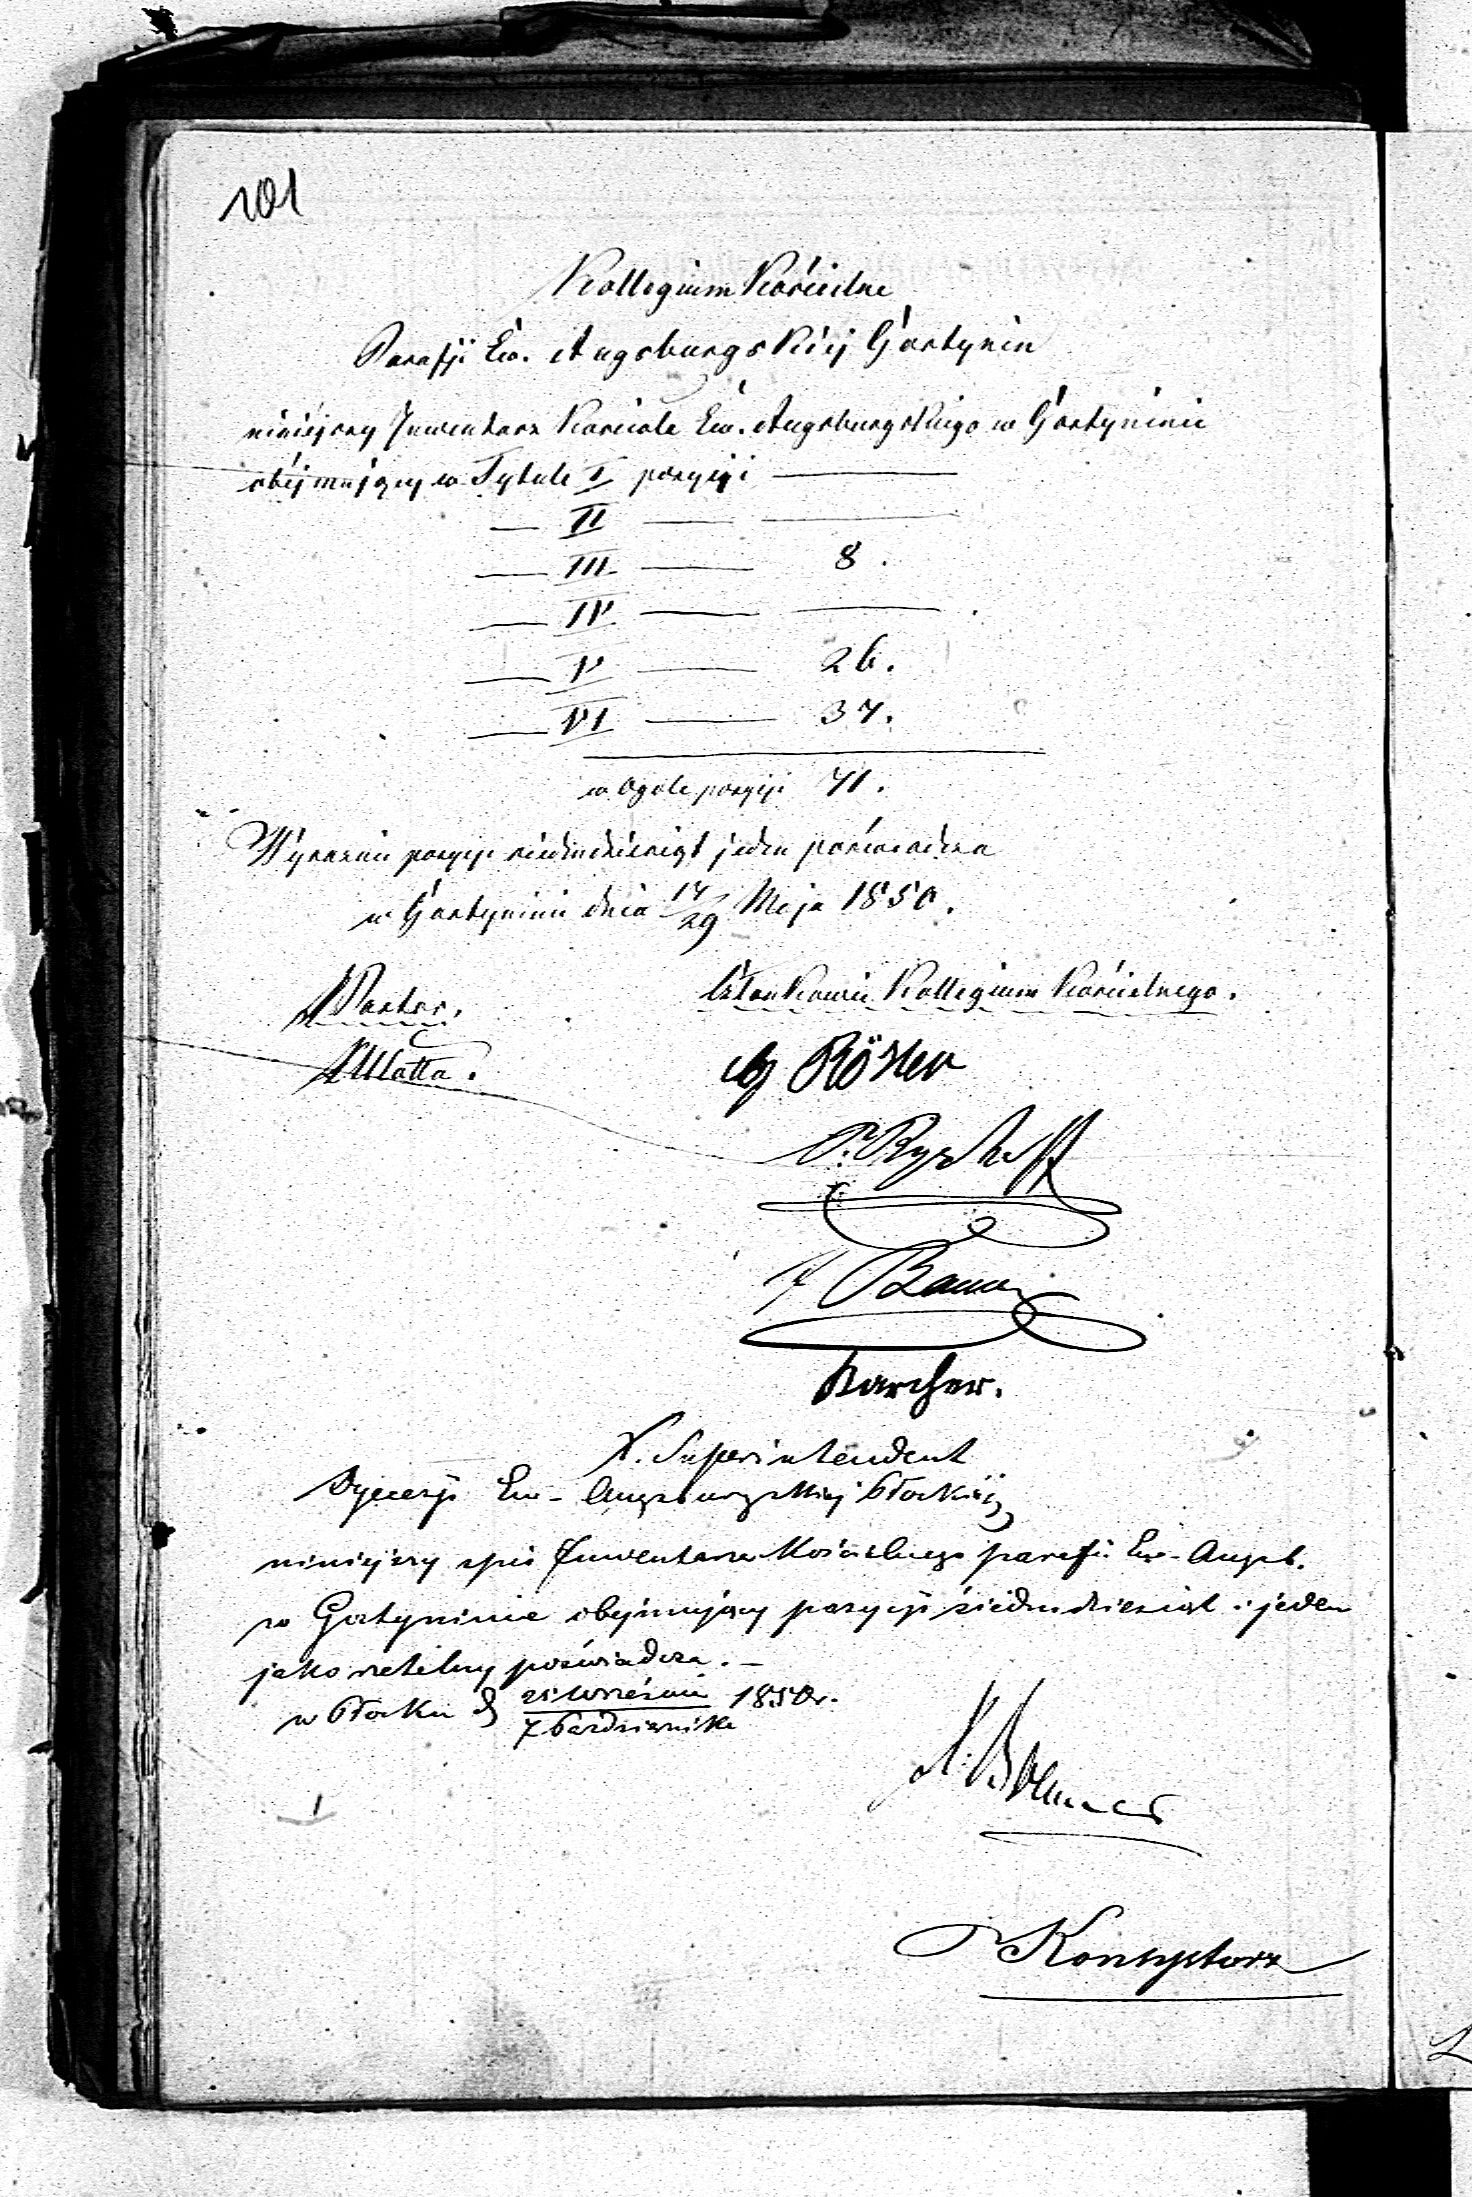 101
Kollegium Kościelne
Parafji Ew. Augsburgskiej Gostynin
niniejszy Inwentarz Kościoła Ew. Augsburgskiego w Gostyninie
obejmujący w Tytule I pozycji —
— II — —
— III — 8.
— IV — — .
— V — 26.
— VI — 37.
w Ogole pozycji 71.
Wyraznie pozycji siedmdziesiąt jeden poświadcza
w Gostyninie dnia 17/29 Maja 1850.
Pastor. Członkowie Kollegium Kościelnego.
Rösler
Karcher.
X. Superintendent
Dyecezji Ew- Augsburgskiej Płockiej
niniejszy spis Inwentarza Kościelnego parafii Ew- Augsb.
w Gostyninie obejmujący pozycji siedmdziesiąt i jeden
jako rzetelny poświadcza. —
w Płocku d 25 Września / 7 Października 1850 r.